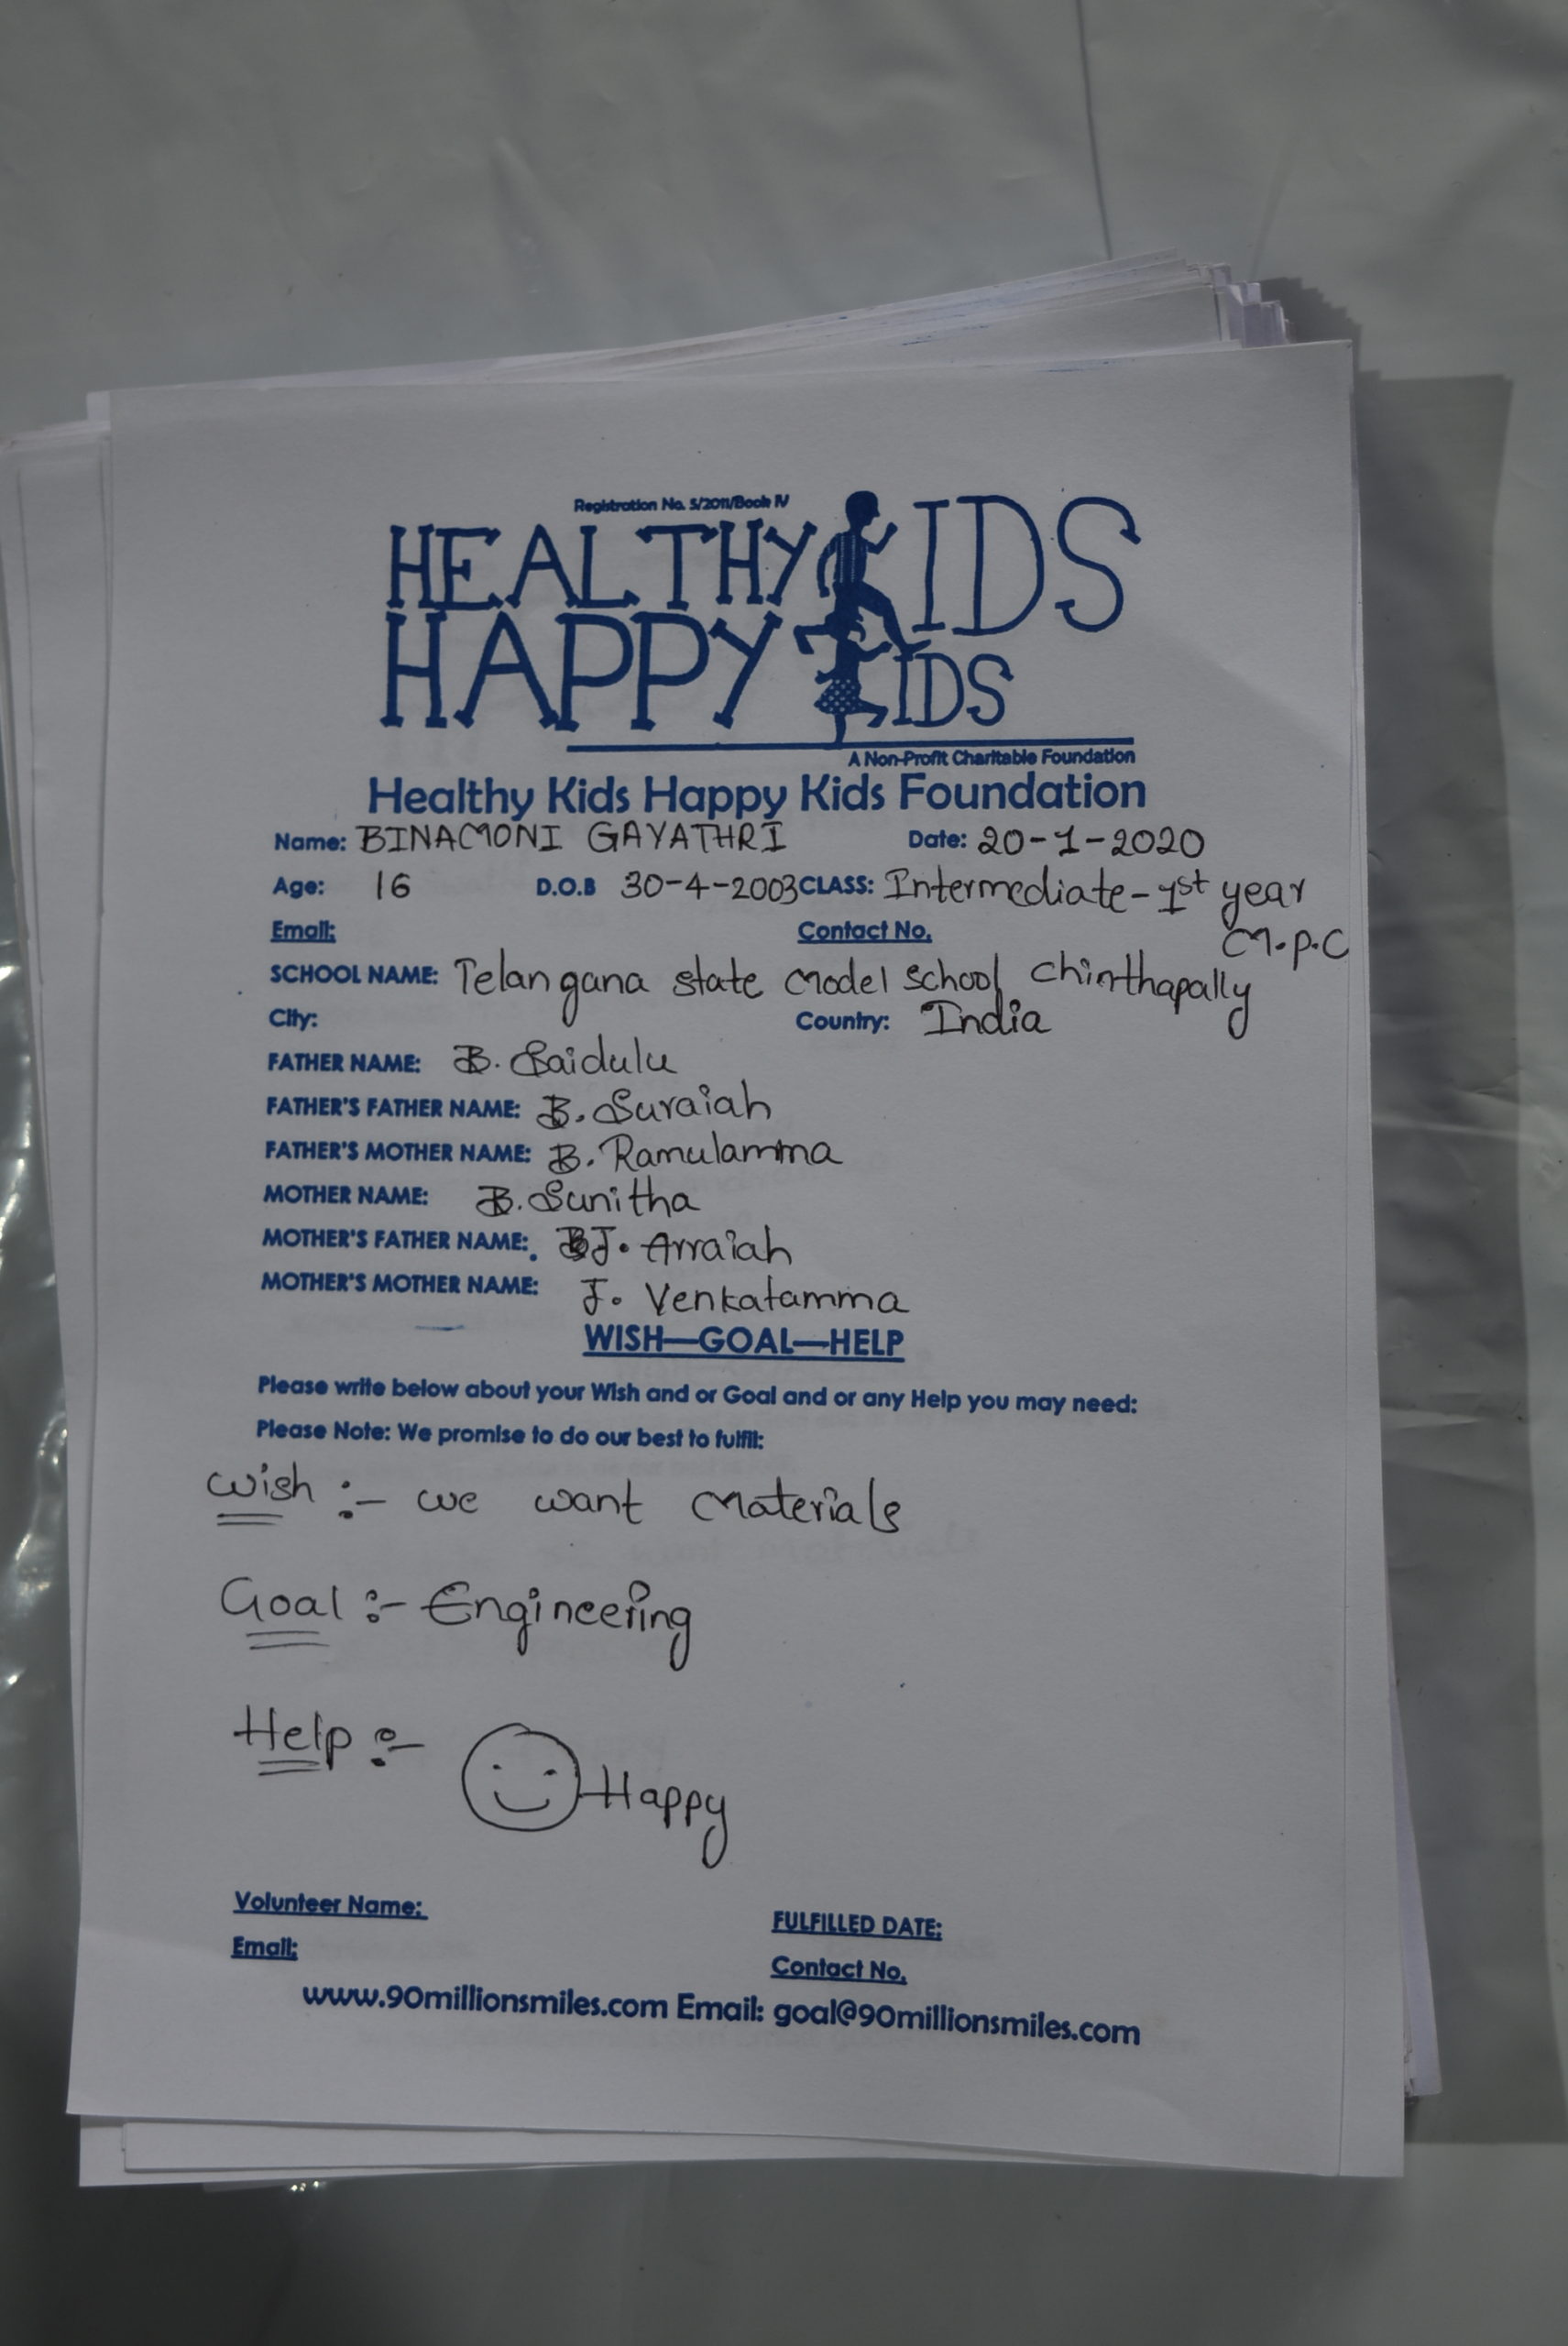 Registration No. 5/2011/Book IV
HEALTHY KIDS
HAPPY KIDS
A Non-Profit Charitable Foundation
Healthy Kids Happy Kids Foundation
Name: BINAMONI GAYATHRI Date: 20-1-2020
Age: 16 D.O.B 30-4-2003 CLASS: Intermediate-1st year
Email: Contact No. M.P.C
SCHOOL NAME: Telangana state Model school Chinthapally
City: Country: India
FATHER NAME: B. Saidulu
FATHER'S FATHER NAME: B. Suraiah
FATHER'S MOTHER NAME: B. Ramulamma
MOTHER NAME: B. Sunitha
MOTHER'S FATHER NAME: J. Arraiah
MOTHER'S MOTHER NAME: J. Venkatamma
WISH—GOAL—HELP
Please write below about your Wish and or Goal and or any Help you may need:
Please Note: We promise to do our best to fulfil:
Wish :- we want Materials
Goal :- Engineering
Help :- Happy
Volunteer Name: FULFILLED DATE:
Email: Contact No.
www.90millionsmiles.com Email: goal@90millionsmiles.com